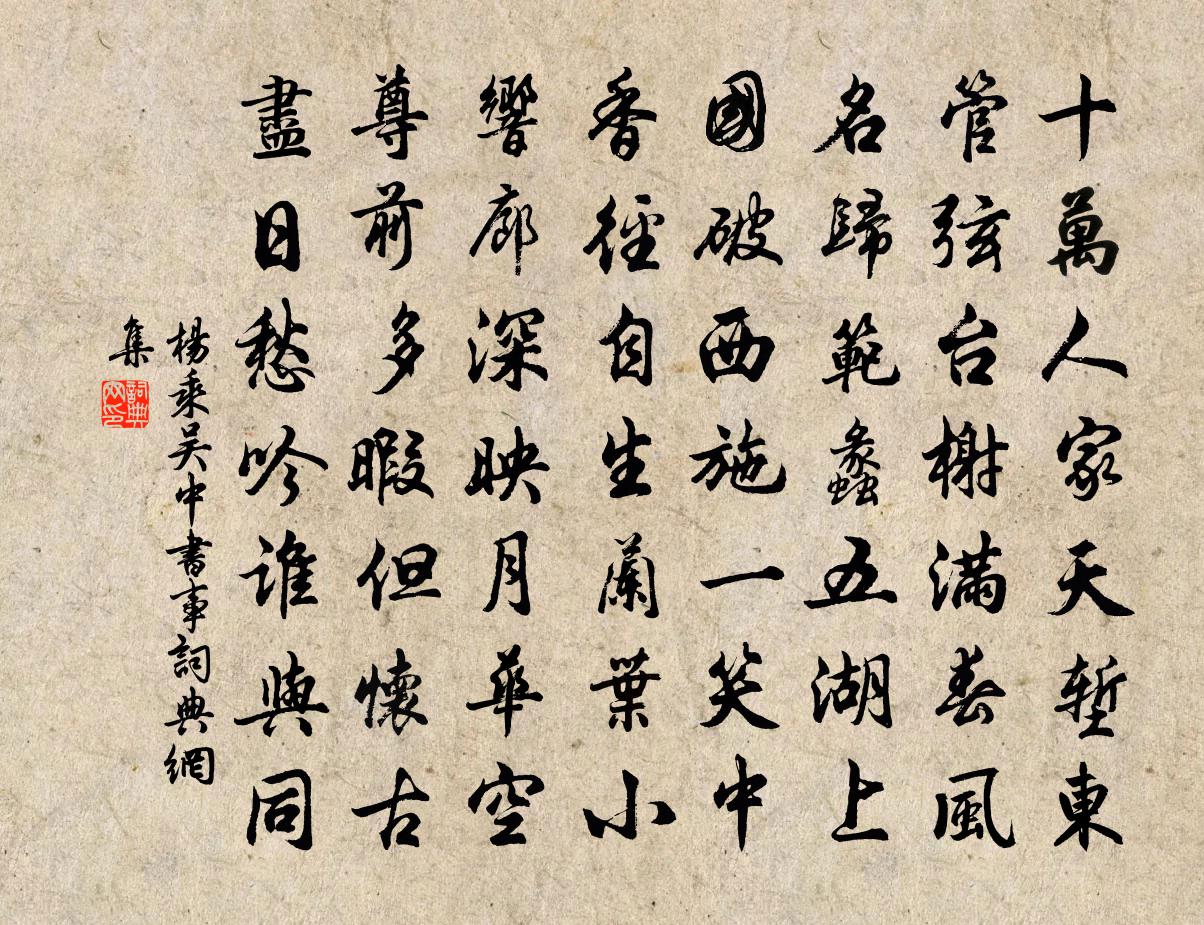 十萬人家天塹東
管弦台榭滿春風
名歸範蠡五湖上
國破西施一笑中
香徑自生蘭葉小
響廊深映月華空
尊前多暇但懷古
盡日愁吟誰與同
楊乘吳中書事詞典網
集
詞典
网印